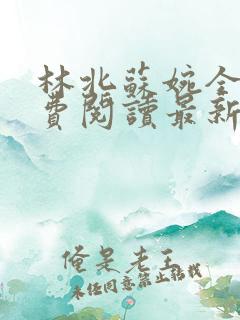 林北蘇婉全
費閱讀最新
俺是老王
未经同意禁止转载